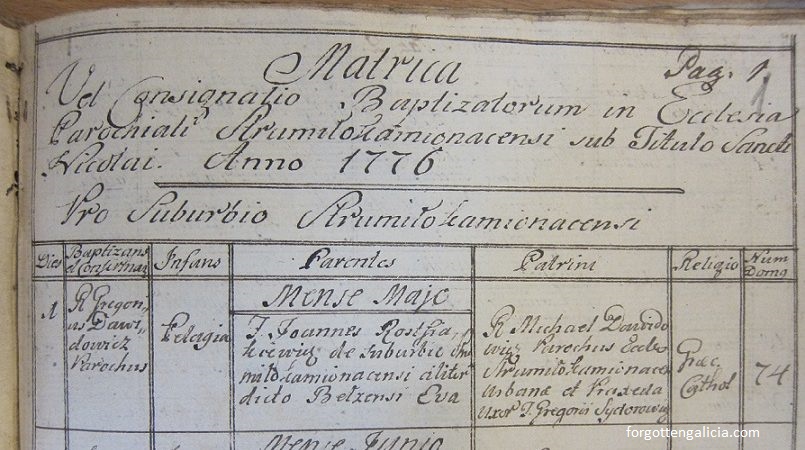 Matrica Pag. 1.
1
Vel Consignatio Baptizatorum in Ecclesia
Parochiali Strumiłokamionacensi sub Titulo Sancti
Nicolai. Anno 1776
Pro Suburbio Strumiłokamionacensi
Dies Baptizans et Confirmans Infans Parentes Patrini Religio Num Domo
Mense Majo
1
R Gregori-
us Dawi-
dowicz
Parochus
Pelagia
J. Joannes
de Suburbio Stru
miłokamionacensi aliter
dicto Belzensi Eva
R Michael Dawido
wicz Parochus Eccle
Strumiłokamionace
Urbanæ et Praxeda
Uxor J. Gregorii Sydorowicz
Græc.
Cathol
74
Mense Junio
forgottengalicia.com